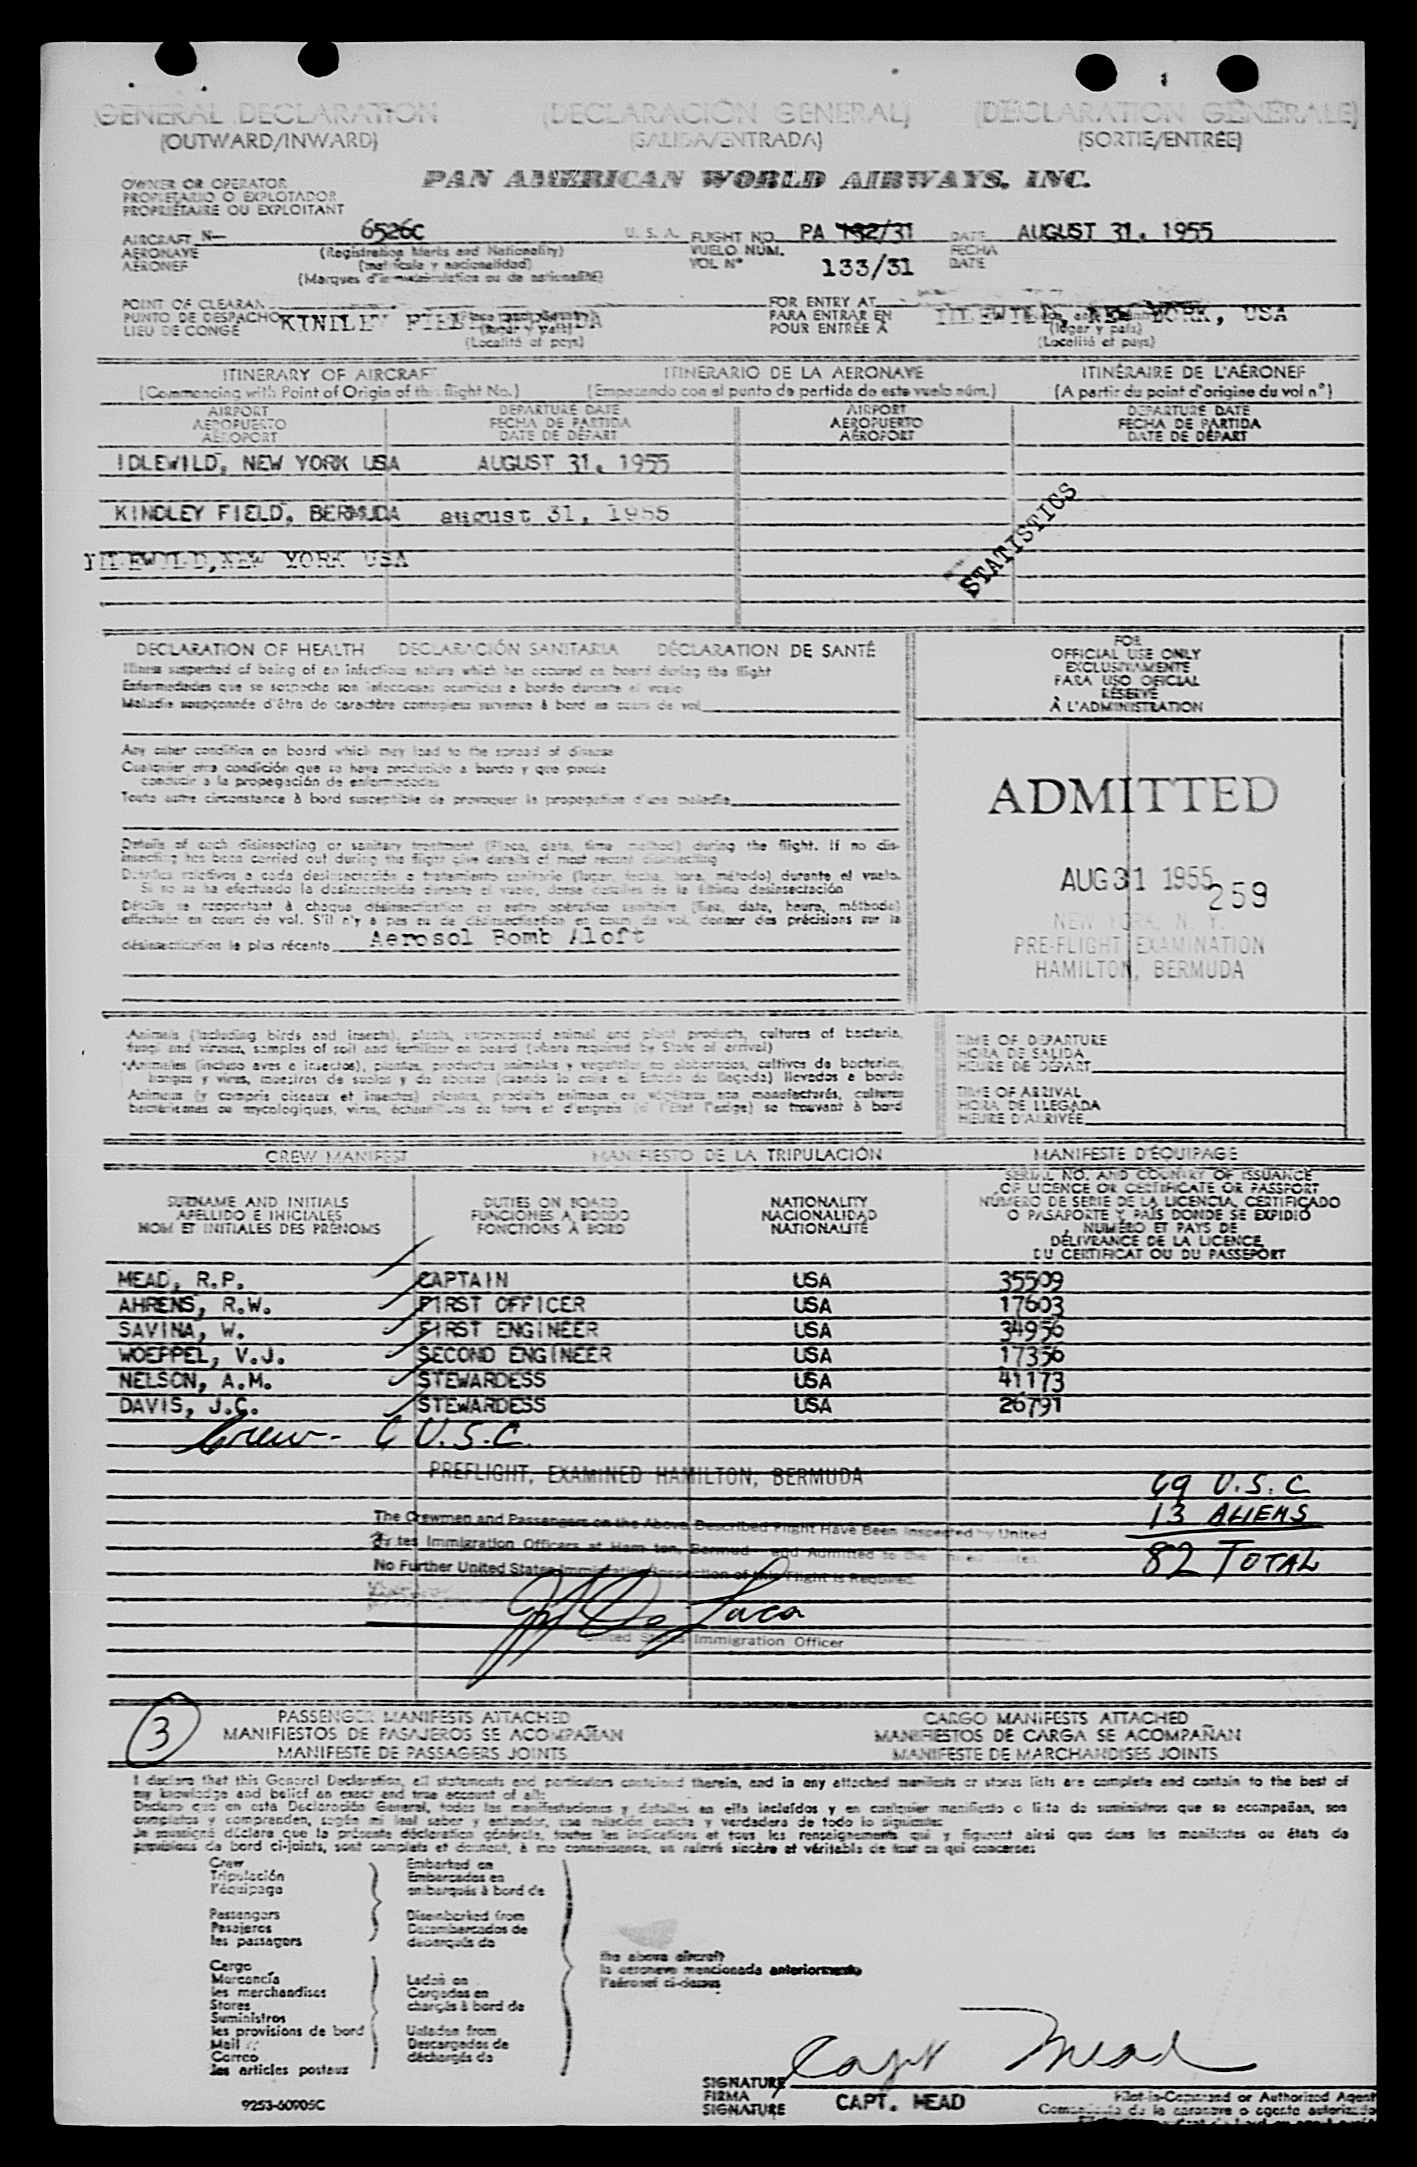 GENERAL DECLARATION (DECLARACIÓN GENERAL) (DÉCLARATION GÉNÉRALE)
(OUTWARD/INWARD) (SALIDA/ENTRADA) (SORTIE/ENTRÉE)
OWNER OR OPERATOR PAN AMERICAN WORLD AIRWAYS, INC.
PROPIETARIO O EXPLOTADOR
PROPRIÉTAIRE OU EXPLOITANT
AIRCRAFT N- 6526C U. S. A. FLIGHT NO. PA 132/31 DATE AUGUST 31, 1955
AERONAVE (Registration Marks and Nationality) VUELO NÚM. FECHA
AÉRONEF (matrícula y nacionalidad) VOL Nº 133/31 DATE
(Marques d'immatriculation ou de nationalité)
POINT OF CLEARAN FOR ENTRY AT
PUNTO DE DESPACHO KINDLEY FIELD PARA ENTRAR EN IDLEWILD, NEW YORK, USA
LIEU DE CONGÉ (lugar y país) POUR ENTRÉE À (lugar y país)
(Localité et pays) (Localité et pays)
ITINERARY OF AIRCRAFT ITINERARIO DE LA AERONAVE ITINÉRAIRE DE L'AÉRONEF
(Commencing with Point of Origin of this flight No.) (Empezando con el punto de partida de este vuelo núm.) (A partir du point d'origine du vol nº)
AIRPORT DEPARTURE DATE AIRPORT DEPARTURE DATE
AEROPUERTO FECHA DE PARTIDA AEROPUERTO FECHA DE PARTIDA
AÉROPORT DATE DE DÉPART AÉROPORT DATE DE DÉPART
IDLEWILD, NEW YORK USA AUGUST 31, 1955
KINDLEY FIELD, BERMUDA august 31, 1955
STATISTICS
IDLEWILD,NEW YORK USA
DECLARATION OF HEALTH DECLARACIÓN SANITARIA DÉCLARATION DE SANTÉ
Illness suspected of being of an infectious nature which has occured on board during the flight
Enfermedades que se sospecha son infecciosas ocurridas a bordo durante el vuelo
Maladie soupçonnée d'être de caractère contagieux survenue à bord en cours de vol
FOR
OFFICIAL USE ONLY
EXCLUSIVAMENTE
PARA USO OFICIAL
RÉSERVÉ
À L'ADMINISTRATION
Any other condition on board which may lead to the spread of disease
Cualquier otra condición que se haya producido a bordo y que pueda
conducir a la propagación de enfermedades
Toute autre circonstance à bord susceptible de provoquer la propagation d'une maladie
ADMITTED
AUG 31 1955 259
NEW YORK, N. Y.
PRE-FLIGHT EXAMINATION
HAMILTON, BERMUDA
Details of each disinsecting or sanitary treatment (Place, date, time method) during the flight. If no dis-
insecting has been carried out during the flight give details of most recent disinsecting
Detalles relativos a cada desinsectación o tratamiento sanitario (lugar, fecha, hora, método) durante el vuelo.
Si no se ha efectuado la desinsectación durante el vuelo, dense detalles de la última desinsectación
Détails se rapportant à chaque désinsectisation ou autre opération sanitaire (lieu, date, heure, méthode)
effectuée en cours de vol. S'il n'y a pas eu de désinsectisation en cours de vol, donner des précisions sur la
désinsectisation la plus récente Aerosol Bomb Aloft
Animals (including birds and insects), plants, unprocessed animal and plant products, cultures of bacteria,
fungi and viruses, samples of soil and fertilizer on board (where required by State of arrival)
Animales (incluso aves e insectos), plantas, productos animales y vegetales no elaborados, cultivos de bacterias,
hongos y virus, muestras de suelos y de abonos (cuando lo exija el Estado de llegada) llevados a bordo
Animaux (y compris oiseaux et insectes) plantes, produits animaux ou végétaux non manufacturés, cultures
bactériennes ou mycologiques, virus, échantillons de terre et d'engrais (si l'État l'exige) se trouvant à bord
TIME OF DEPARTURE
HORA DE SALIDA
HEURE DE DÉPART
TIME OF ARRIVAL
HORA DE LLEGADA
HEURE D'ARRIVÉE
CREW MANIFEST MANIFIESTO DE LA TRIPULACIÓN MANIFESTE D'ÉQUIPAGE
SURNAME AND INITIALS DUTIES ON BOARD NATIONALITY
APELLIDO E INICIALES FUNCIONES A BORDO NACIONALIDAD
NOM ET INITIALES DES PRÉNOMS FONCTIONS À BORD NATIONALITÉ
SERIAL NO. AND COUNTRY OF ISSUANCE
OF LICENCE OR CERTIFICATE OR PASSPORT
NÚMERO DE SERIE DE LA LICENCIA, CERTIFICADO
O PASAPORTE Y PAÍS DONDE SE EXPIDIÓ
NUMÉRO ET PAYS DE
DÉLIVRANCE DE LA LICENCE,
DU CERTIFICAT OU DU PASSEPORT
MEAD, R.P. CAPTAIN USA 35509
AHRENS, R.W. FIRST OFFICER USA 17603
SAVINA, W. FIRST ENGINEER USA 34956
WOEPPEL, V.J. SECOND ENGINEER USA 17356
NELSON, A.M. STEWARDESS USA 41173
DAVIS, J.C. STEWARDESS USA 26791
Crew - 6 U.S.C.
PREFLIGHT, EXAMINED HAMILTON, BERMUDA
69 U.S.C
13 ALIENS
82 TOTAL
The Crewmen and Passengers on the Above Described Flight Have Been Inspected by United
States Immigration Officers at Hamilton, Bermuda and Admitted to the United States.
No Further United States Immigration Inspection of this Flight is Required.
United States Immigration Officer
3
PASSENGER MANIFESTS ATTACHED CARGO MANIFESTS ATTACHED
MANIFIESTOS DE PASAJEROS SE ACOMPAÑAN MANIFIESTOS DE CARGA SE ACOMPAÑAN
MANIFESTE DE PASSAGERS JOINTS MANIFESTE DE MARCHANDISES JOINTS
I declare that this General Declaration, all statements and particulars contained therein, and in any attached manifests or stores lists are complete and contain to the best of
my knowledge and belief an exact and true account of all:
Declaro que en esta Declaración General, todas las manifestaciones y detalles en ella incluídos y en cualquier manifiesto o lista de suministros que se acompañan, son
completos y comprenden, según mi leal saber y entender, una relación exacta y verdadera de todo lo siguiente:
Je soussigné déclare que la présente déclaration générale, toutes les indications et tous les renseignements qui y figurent ainsi que dans les manifestes ou états de
provisions de bord ci-joints, sont complets et donnent, à ma connaissance, un relevé sincère et véritable de tout ce qui concerne:
Crew Embarked on
Tripulación Embarcados en
l'équipage embarqués à bord de
Passengers Disembarked from
Pasajeros Desembarcados de
les passagers débarqués de
the above aircraft
la aeronave mencionada anteriormente
l'aéronef ci-dessus
Cargo
Mercancía Laden on
les marchandises Cargados en
Stores chargés à bord de
Suministros
les provisions de bord Unladen from
Mail Descargados de
Correo déchargés de
les articles postaux
Capt Mead
SIGNATURE
FIRMA CAPT. MEAD
SIGNATURE
Pilot-in-Command or Authorized Agent
Comandante de la aeronave o agente autorizado
9253-60905C